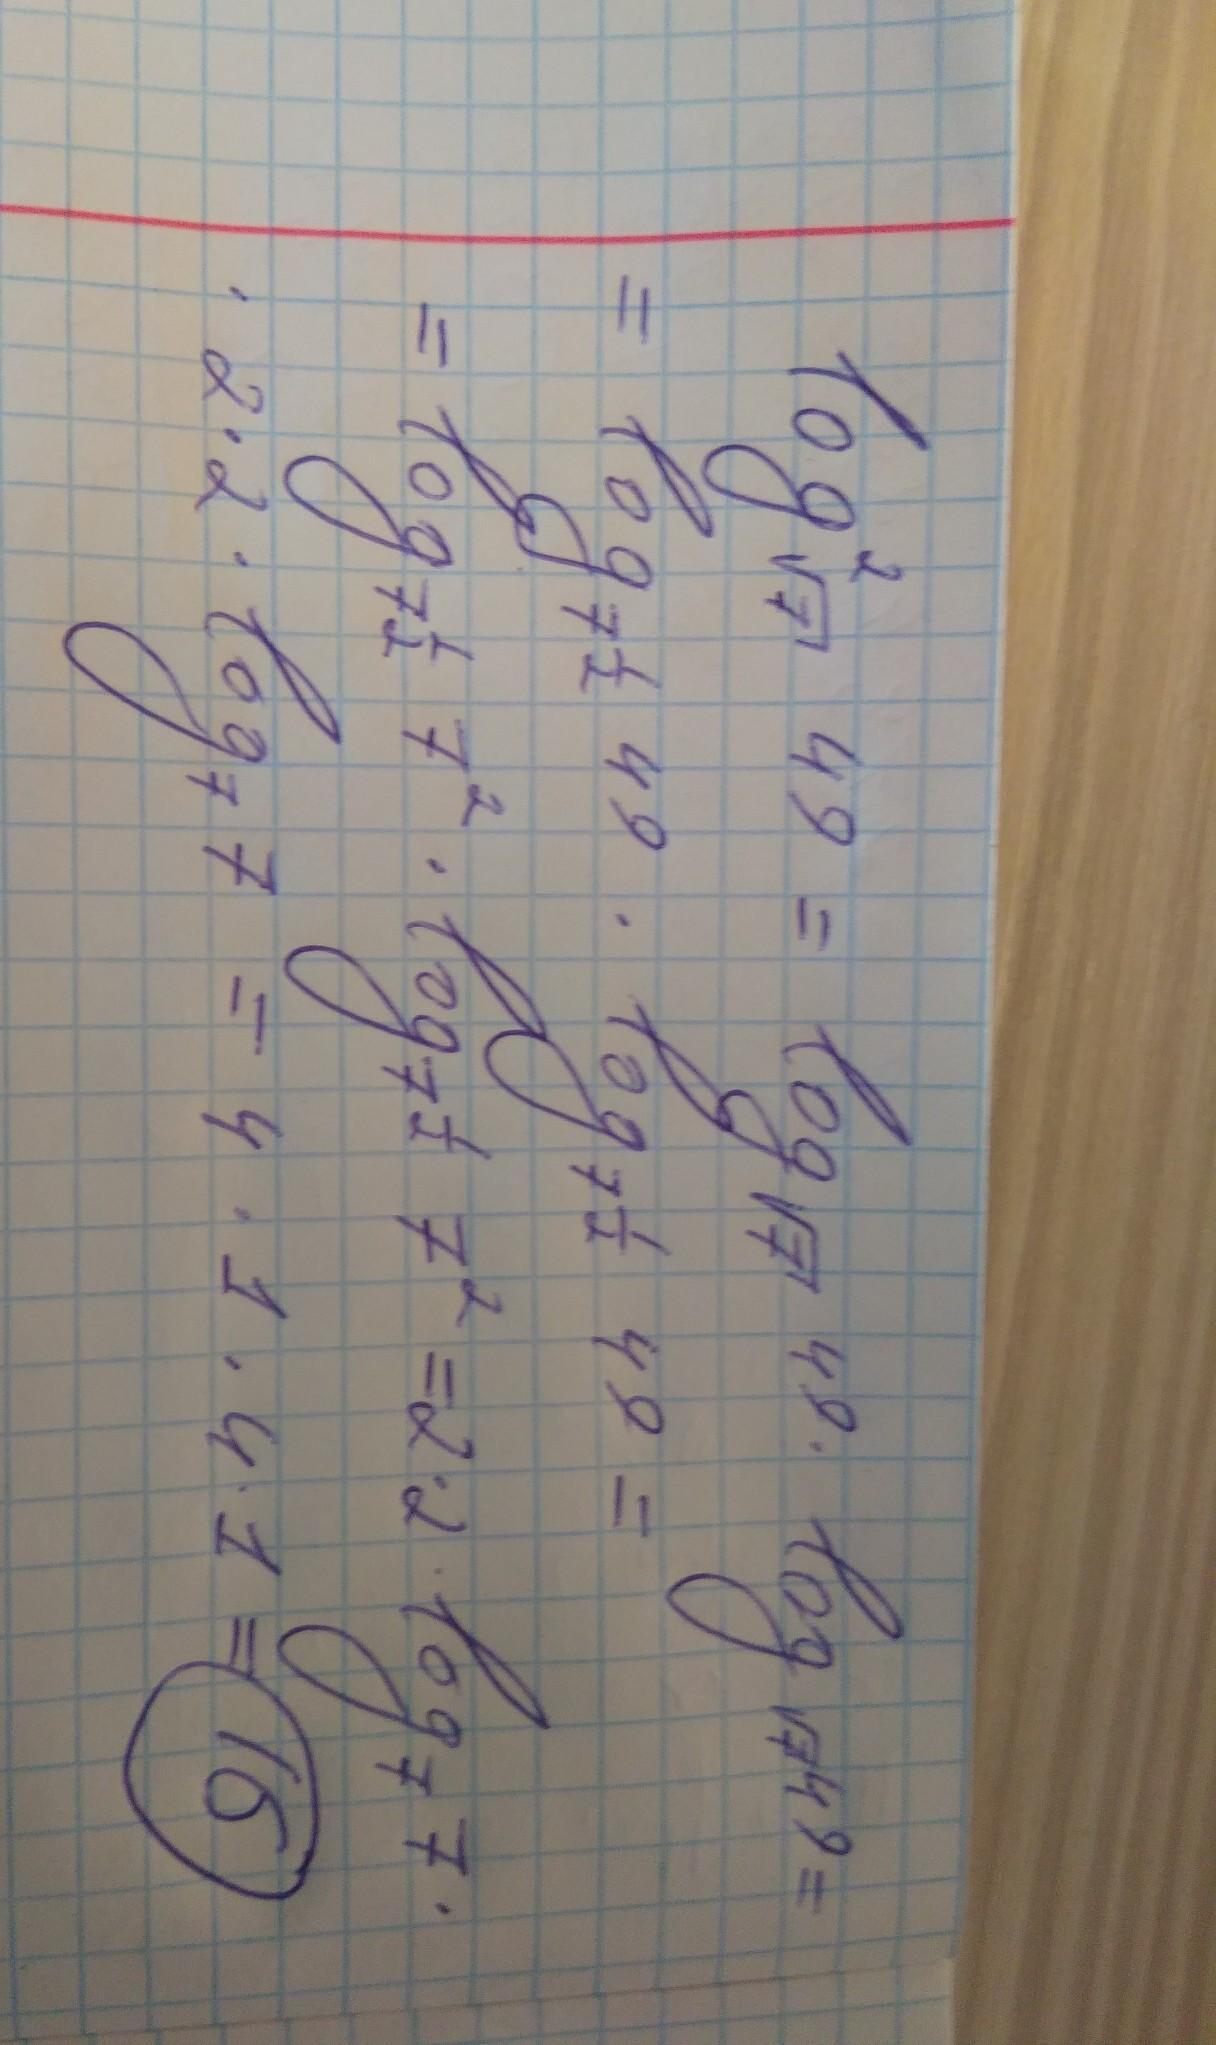 log²√7 49 = log√7 49 · log√7 49 =
= log7½ 49 · log7½ 49 =
= log7½ 7² · log7½ 7² = 2·2·log7 7 ·
· 2·2·log7 7 = 4·1·4·1 = 16